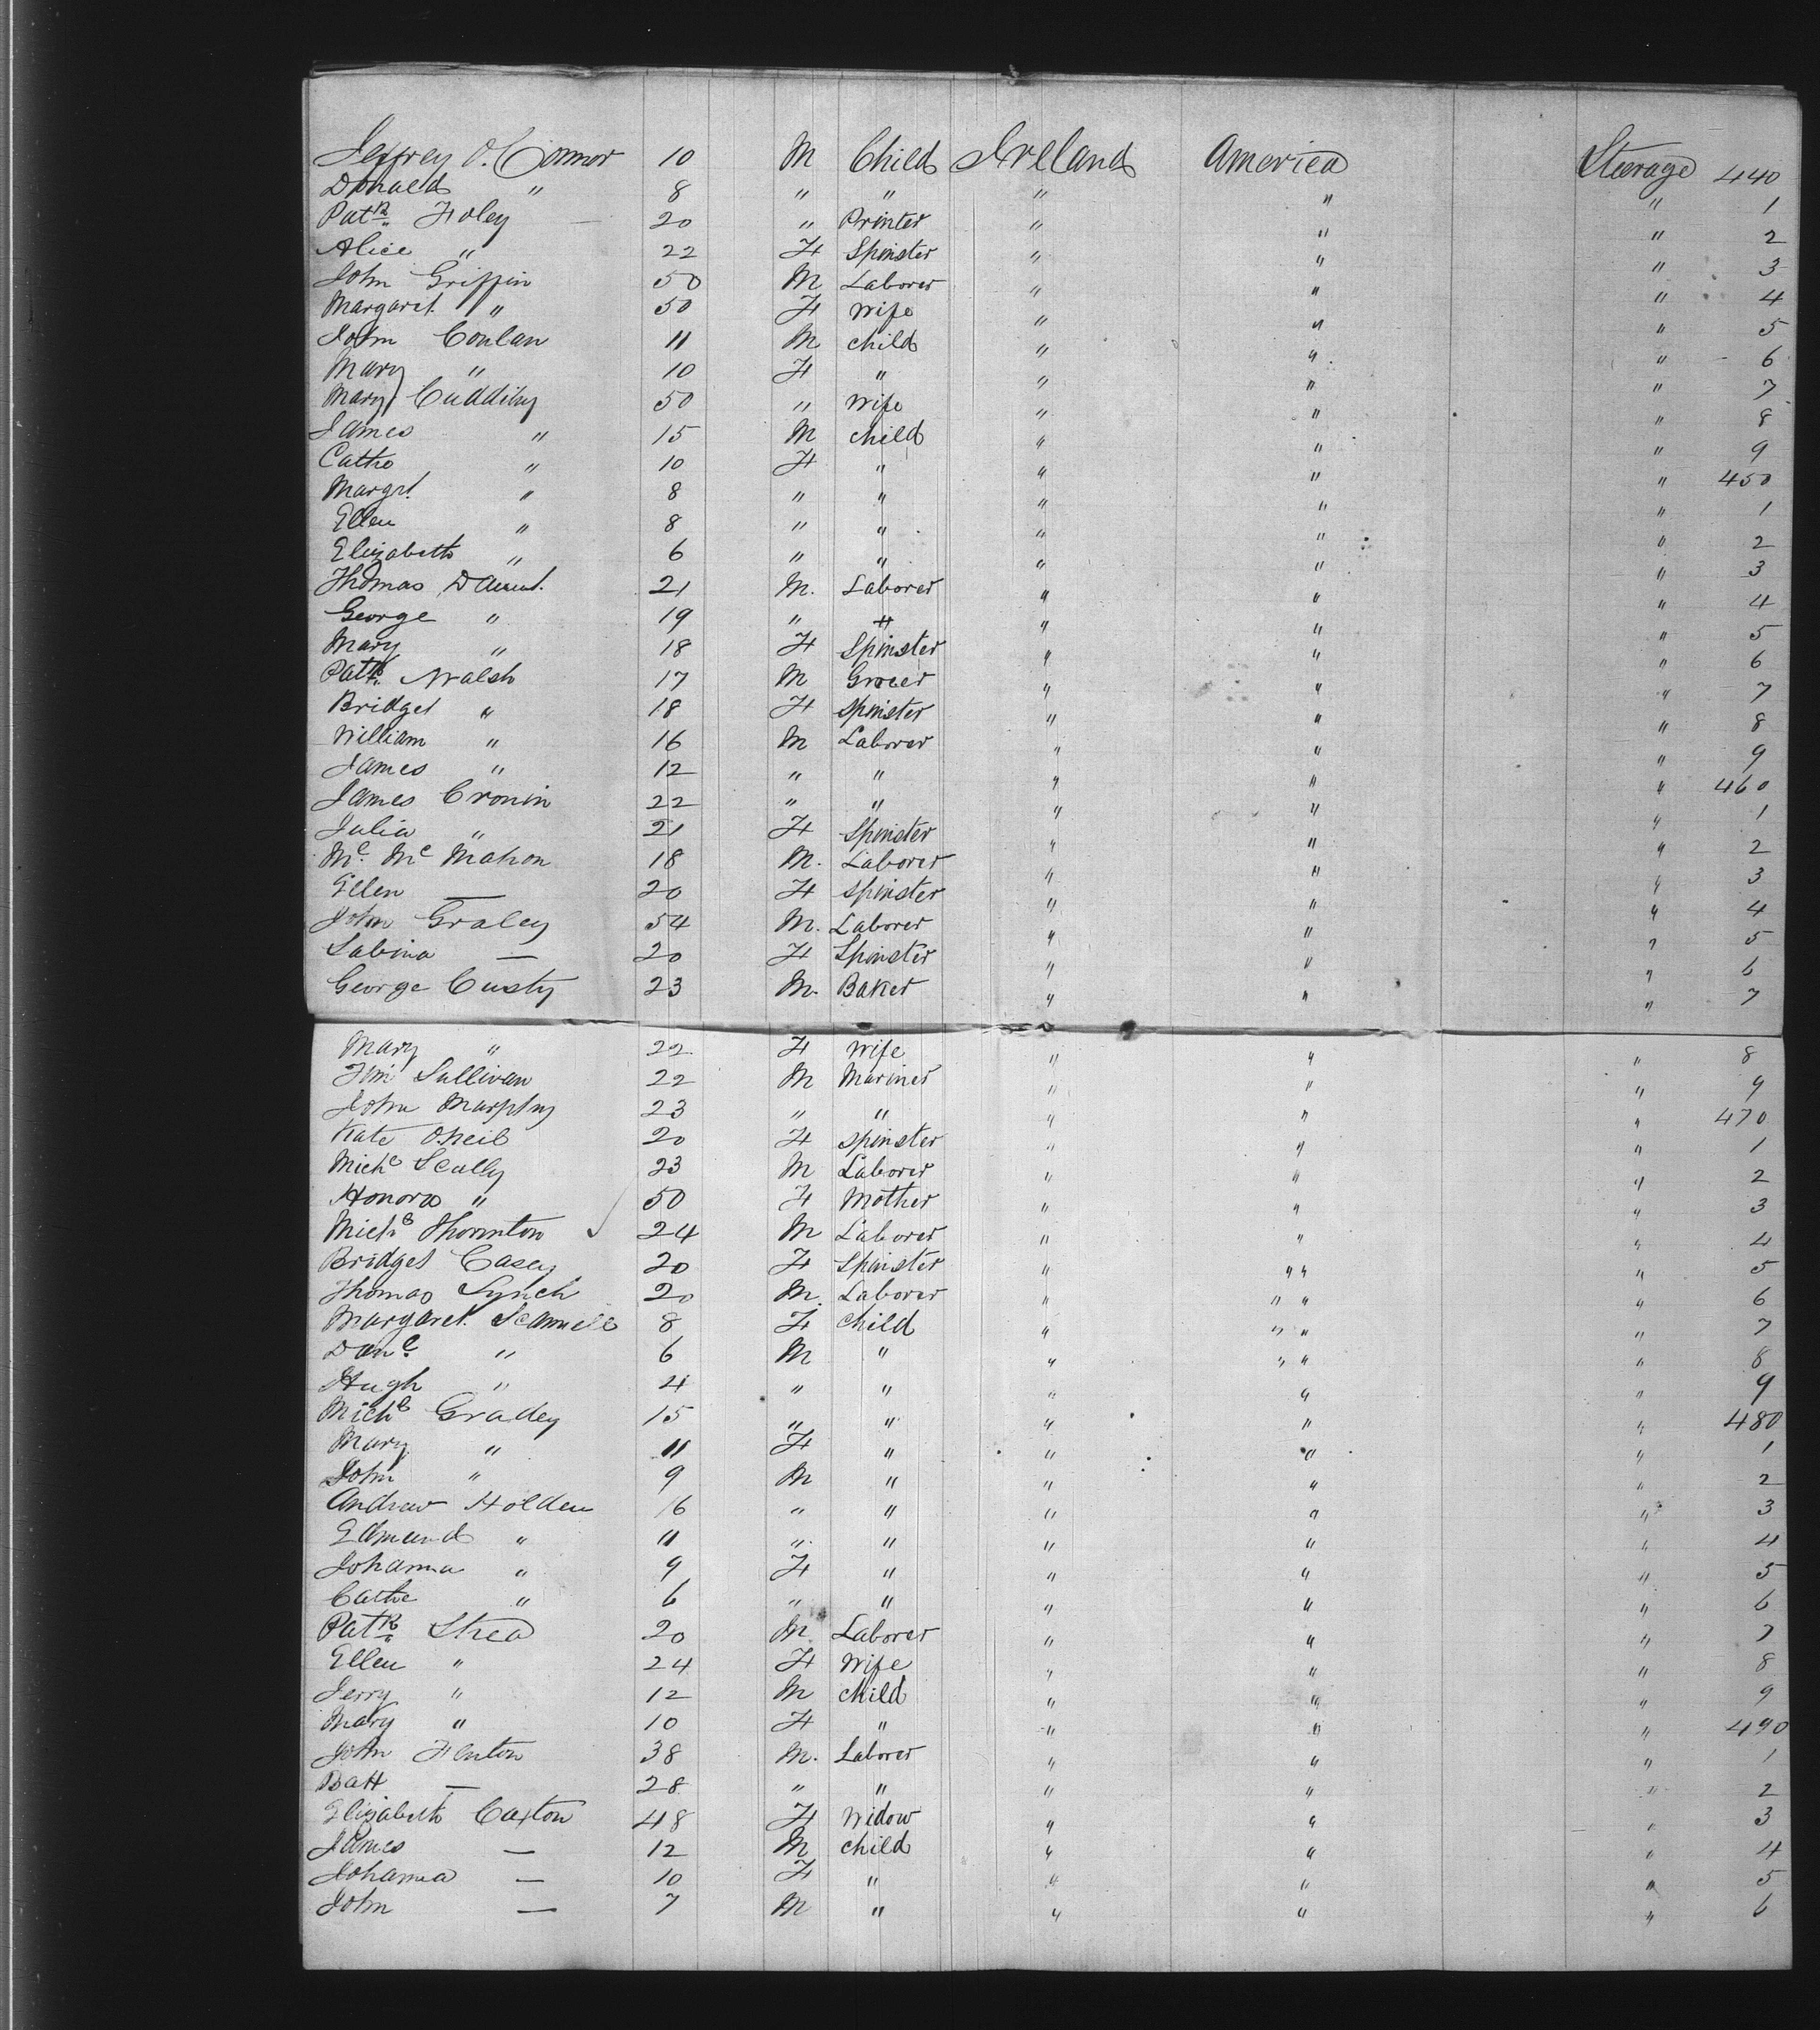 Jeffrey O'Connor 10 M Child Ireland America Steerage 440
Donald " 8 " " " " " 1
Patk Foley — 20 " Printer " " " 2
Alice " 22 F Spinster " " " 3
John Griffin 50 M Laborer " " " 4
Margaret " 50 F Wife " " " 5
John Conlan 11 M Child " " " 6
Mary " 10 F " " " " 7
Mary Cuddihy 50 " Wife " " " 8
James " 15 M Child " " " 9
Cathe " 10 F " " " " 450
Margrt " 8 " " " " " 1
Ellen " 8 " " " " " 2
Elizabeth " 6 " " " " " 3
Thomas 21 M. Laborer " " " 4
George " 19 " " " " " 5
Mary " 18 F Spinster " " " 6
Patk Walsh 17 M Grocer " " " 7
Bridget " 18 F Spinster " " " 8
William " 16 M Laborer " " " 9
James " 12 " " " " " 460
James Cronin 22 " " " " " 1
Julia " 21 F Spinster " " " 2
Mc. Mc Mahon 18 M. Laborer " " " 3
Ellen — 20 F Spinster " " " 4
John Graley 54 M. Laborer " " " 5
Sabina — 20 F Spinster " " " 6
George Custy 23 M. Baker " " " 7
Mary " 22 F Wife " " " 8
Tim Sullivan 22 M Mariner " " " 9
John Murphy 23 " " " " " 470
Kate O.Neil 20 F Spinster " " " 1
Michl Scully 23 M Laborer " " " 2
Honora " 50 F Mother " " " 3
Michl Thornton 24 M Laborer " " " 4
Bridget Casey 20 F Spinster " " " " 5
Thomas Lynch 20 M. Laborer " " " " 6
Margaret Scannell 8 F Child " " " " 7
Danl " 6 M " " " " " 8
Hugh " 4 " " " " " 9
Michl Gradey 15 " " " " " 480
Mary " 11 F " " " " 1
John " 9 M " " " " 2
Andrew Holden 16 " " " " " 3
Edmund " 11 " " " " " 4
Johanna " 9 F " " " " 5
Cathe " 6 " " " " " 6
Patk Shea 20 M Laborer " " " 7
Ellen " 24 F Wife " " " 8
Jerry " 12 M Child " " " 9
Mary " 10 F " " " " 490
John Fenton 38 M. Laborer " " " 1
Batt — 28 " " " " " 2
Elizabeth Caxton 48 F Widow " " " 3
James — 12 M Child " " " 4
Johanna — 10 F " " " " 5
John — 7 M " " " " 6